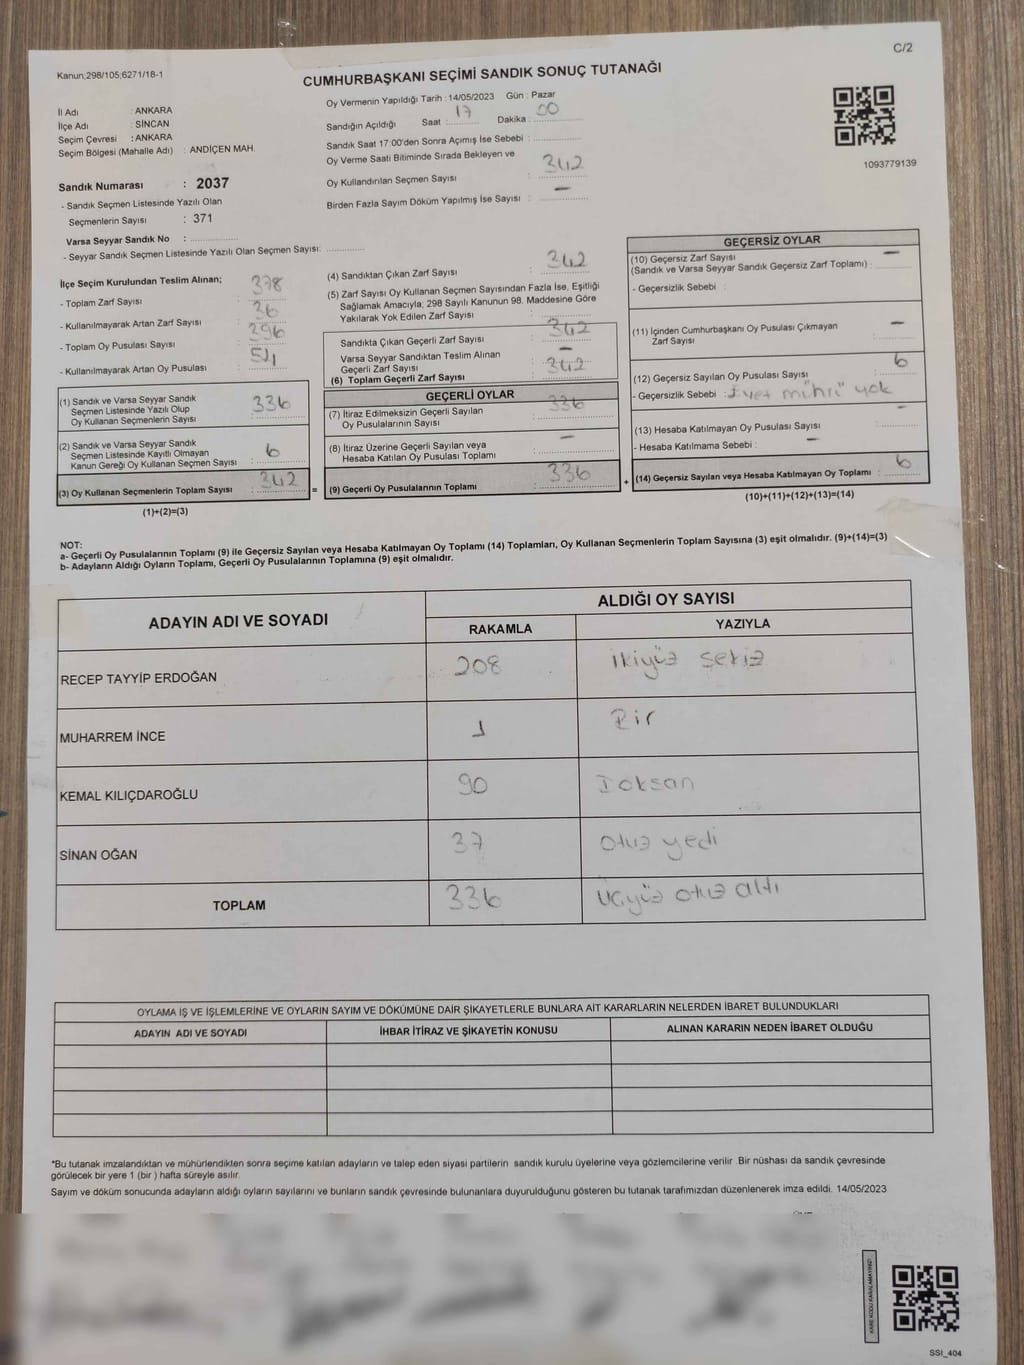 C/2
Kanun;298/105;6271/18-1
CUMHURBAŞKANI SEÇİMİ SANDIK SONUÇ TUTANAĞI
İl Adı : ANKARA
İlçe Adı : SİNCAN
Seçim Çevresi : ANKARA
Seçim Bölgesi (Mahalle Adı) : ANDİÇEN MAH.
Oy Vermenin Yapıldığı Tarih : 14/05/2023 Gün : Pazar
Sandığın Açıldığı Saat : 17 Dakika : 00
Sandık Saat 17:00'den Sonra Açımış İse Sebebi :
Oy Verme Saati Bitiminde Sırada Bekleyen ve
Oy Kullandırılan Seçmen Sayısı : 342
Birden Fazla Sayım Döküm Yapılmış İse Sayısı : —
1093779139
Sandık Numarası : 2037
- Sandık Seçmen Listesinde Yazılı Olan
Seçmenlerin Sayısı : 371
Varsa Seyyar Sandık No :
- Seyyar Sandık Seçmen Listesinde Yazılı Olan Seçmen Sayısı:
İlçe Seçim Kurulundan Teslim Alınan;
- Toplam Zarf Sayısı : 378
- Kullanılmayarak Artan Zarf Sayısı : 36
- Toplam Oy Pusulası Sayısı : 396
- Kullanılmayarak Artan Oy Pusulası : 54
(1) Sandık ve Varsa Seyyar Sandık
Seçmen Listesinde Yazılı Olup
Oy Kullanan Seçmenlerin Sayısı : 336
(2) Sandık ve Varsa Seyyar Sandık
Seçmen Listesinde Kayıtlı Olmayan
Kanun Gereği Oy Kullanan Seçmen Sayısı : 6
(3) Oy Kullanan Seçmenlerin Toplam Sayısı : 342
(1)+(2)=(3)
(4) Sandıktan Çıkan Zarf Sayısı : 342
(5) Zarf Sayısı Oy Kullanan Seçmen Sayısından Fazla İse, Eşitliği
Sağlamak Amacıyla; 298 Sayılı Kanunun 98. Maddesine Göre
Yakılarak Yok Edilen Zarf Sayısı :
Sandıkta Çıkan Geçerli Zarf Sayısı : 342
Varsa Seyyar Sandıktan Teslim Alınan
Geçerli Zarf Sayısı : —
(6) Toplam Geçerli Zarf Sayısı : 342
GEÇERLİ OYLAR
(7) İtiraz Edilmeksizin Geçerli Sayılan
Oy Pusulalarının Sayısı : 336
(8) İtiraz Üzerine Geçerli Sayılan veya
Hesaba Katılan Oy Pusulası Toplamı : —
= (9) Geçerli Oy Pusulalarının Toplamı : 336
GEÇERSİZ OYLAR
(10) Geçersiz Zarf Sayısı
(Sandık ve Varsa Seyyar Sandık Geçersiz Zarf Toplamı) : —
- Geçersizlik Sebebi :
(11) İçinden Cumhurbaşkanı Oy Pusulası Çıkmayan
Zarf Sayısı : —
(12) Geçersiz Sayılan Oy Pusulası Sayısı : 6
- Geçersizlik Sebebi : Evet mührü yok
(13) Hesaba Katılmayan Oy Pusulası Sayısı : —
- Hesaba Katılmama Sebebi : —
+ (14) Geçersiz Sayılan veya Hesaba Katılmayan Oy Toplamı : 6
(10)+(11)+(12)+(13)=(14)
NOT:
a- Geçerli Oy Pusulalarının Toplamı (9) ile Geçersiz Sayılan veya Hesaba Katılmayan Oy Toplamı (14) Toplamları, Oy Kullanan Seçmenlerin Toplam Sayısına (3) eşit olmalıdır. (9)+(14)=(3)
b- Adayların Aldığı Oyların Toplamı, Geçerli Oy Pusulalarının Toplamına (9) eşit olmalıdır.
ADAYIN ADI VE SOYADI ALDIĞI OY SAYISI
RAKAMLA YAZIYLA
RECEP TAYYİP ERDOĞAN 208 ikiyüz sekiz
MUHARREM İNCE 1 Bir
KEMAL KILIÇDAROĞLU 90 Doksan
SİNAN OĞAN 37 Otuz yedi
TOPLAM 336 Üçyüz otuz altı
OYLAMA İŞ VE İŞLEMLERİNE VE OYLARIN SAYIM VE DÖKÜMÜNE DAİR ŞİKAYETLERLE BUNLARA AİT KARARLARIN NELERDEN İBARET BULUNDUKLARI
ADAYIN ADI VE SOYADI İHBAR İTİRAZ VE ŞİKAYETİN KONUSU ALINAN KARARIN NEDEN İBARET OLDUĞU
*Bu tutanak imzalandıktan ve mühürlendikten sonra seçime katılan adayların ve talep eden siyasi partilerin sandık kurulu üyelerine veya gözlemcilerine verilir .Bir nüshası da sandık çevresinde
görülecek bir yere 1 (bir ) hafta süreyle asılır.
Sayım ve döküm sonucunda adayların aldığı oyların sayılarını ve bunların sandık çevresinde bulunanlara duyurulduğunu gösteren bu tutanak tarafımızdan düzenlenerek imza edildi. 14/05/2023
SSI_404